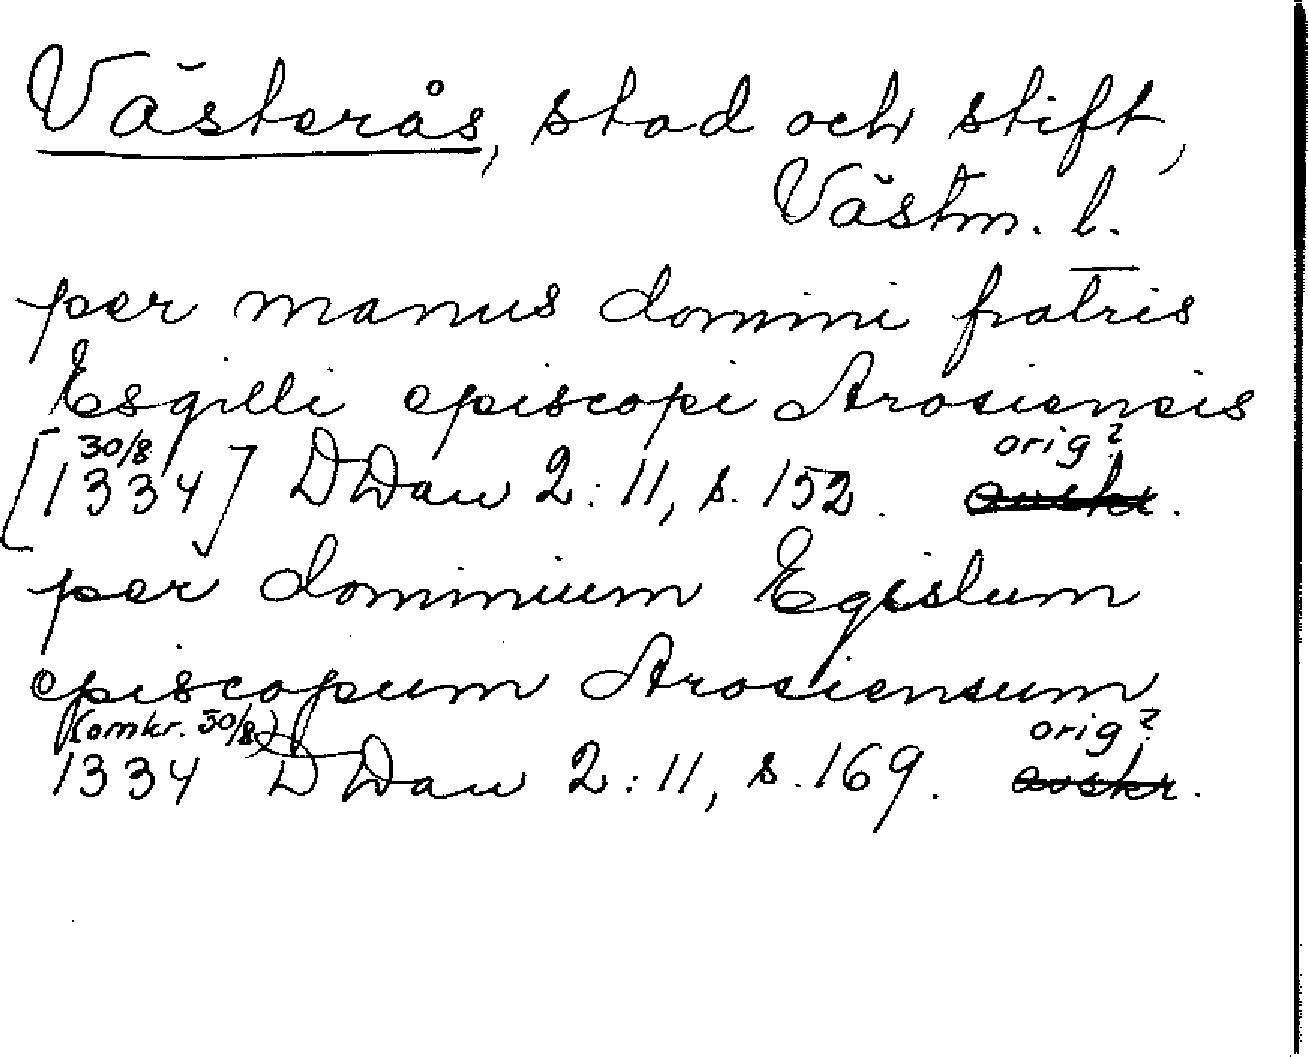 Västerås, stad och stift,
Västm. l.
per manus domini fratris
Esgilli episcopi Arosiensis
30/8 orig?
[1334] DDan 2:11, s. 152. avskr.
per dominium Egislum
episcopum Arosiensum
(omkr. 30/8) orig?
1334 DDan 2:11, s. 169. avskr.